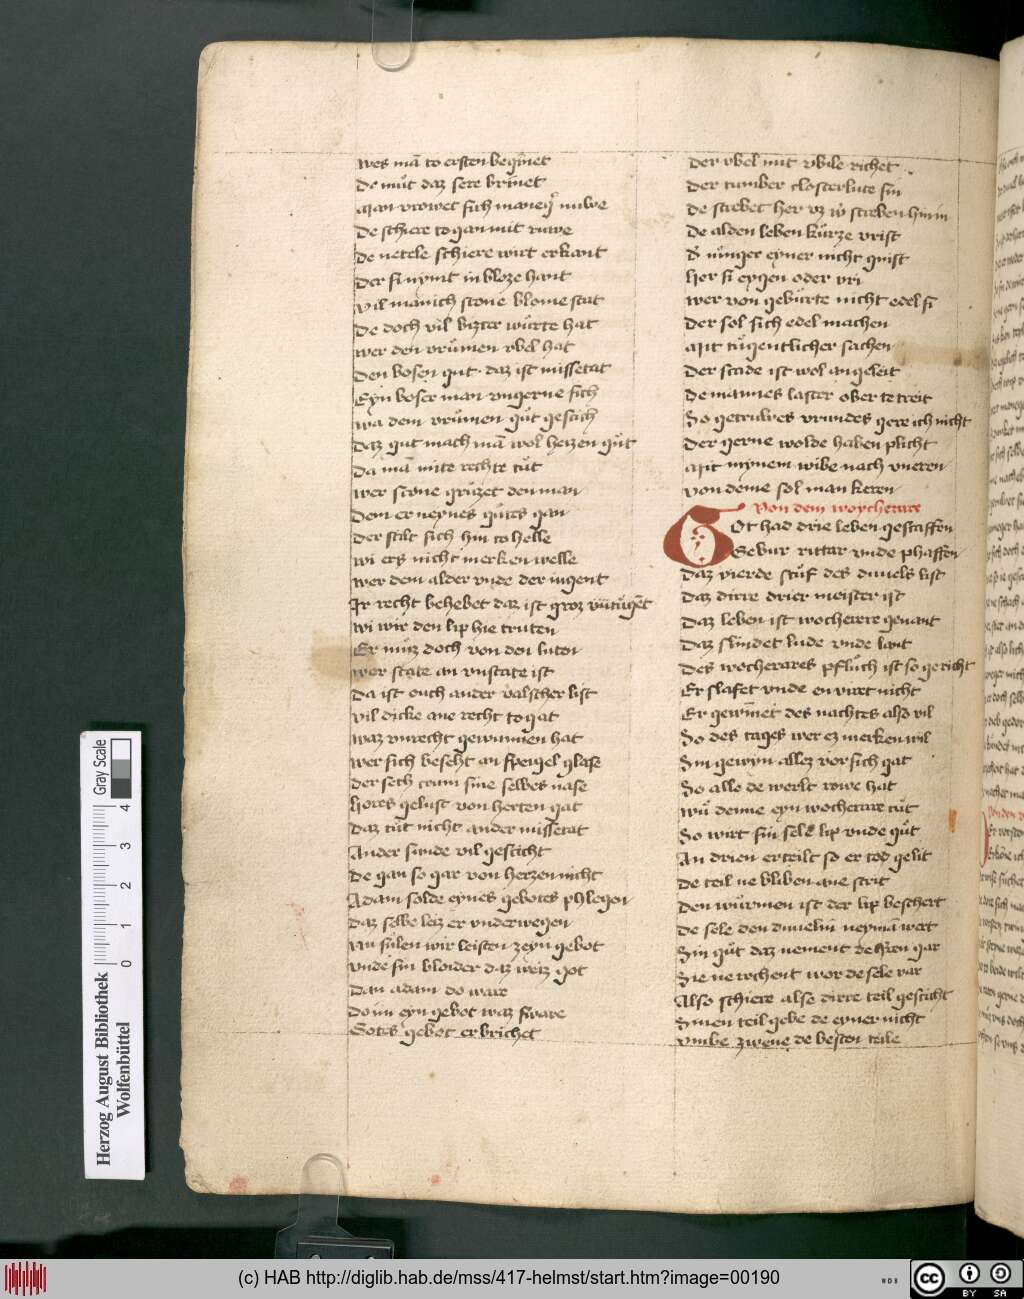 wes mā to ersten beginnet
De mut daz sere brinnet
Man vrowet sich manegʳ nuwe
De schere to gan mit ruwe
De netele schiere wirt erkant
Der si nymt in bloze hant
Vil manich scone blome stat
De doch vil bitter wurte hat
wer den vrůmen vbel hat
Den bosen gut. daz ist missetat
Eyn boser man vngerne sich
wa dem vrůmen gůt geschich
Daz gut mach mā wol heizen gůt
Da mā mite rechte tůt
wer scone grůzet den man
Dem er neynes gůtes gan
der stilt sich hin to helle
wi ers nicht merken welle
wer dem alder vnde der iugent
Ir recht behebet daz ist groz vntugēt
wi wir den lip hie truten
Er můz doch von den luten
wer state an vnstate ist
Da ist ouch ander valscher list
vil dicke ane recht to gat
waz vnrecht gewunnen hat
wer sich beseht an speigel glase
der seth crum sine selbes nase
hores gelust von herten gat
Daz tůt nicht ander missetat
Ander sunde vil geschicht
De gan so gar von herzen nicht
Adam solde eynes gebotes phlegen
daz selbe leiz er vnderwegen
Nu sulen wir leisten zeyn gebot
vnde sin bloider daz weiz got
Dan adam do ware
Do im eyn gebot waz sware
Gotes gebot er brichet
Der vbel mit vbile richet
Der tumber closterlute sin
de strebet her vz wʳ streben hin in
De alden leben kůrze vrist
Dʳ iunger eyner nicht gnist
Her si eygen oder vri
wer von gebůrte nicht edel si
Der sol sich edel machen
Mit tůgentlicher sachen
Der scade ist wol angeleit
De mannes laster ober te treit
So getruwes vrundes gere ich nicht
Der gerne wolde haben plicht
Mit mynem wibe nach vneren
von deme sol man keren
Von dem woycherare
Got had drie leben gescaffen
Gebur rittar vnde phaffen
Daz vierde scůf des duuels list
Daz dirre drier meister ist
Daz leben ist wocherere genant
Daz slindet lude vnde lant
Des wocherares pflůch ist so gericht
Er slafet vnde en viret nicht
Er gewinnet des nachtes also vil
So des tages wer ez merken wil
Sin gewyn allez vor sich gat
So alle de werlt rowe hat
wů denne eyn wocherare tůt
So wirt sin sele lip vnde gůt
An drien erteilt so er tod gelit
De teil ne bliben ane strit
Den wůrmen ist der lip beschert
De sele den duuelin neymā wert
Sin gůt daz nement de heren gar
Sie ne rochent wor de sele var
Also schiere alse dirre teil geschicht
Sinen teil gebe de eyner nicht
vmbe zwene de besten teile
Herzog August Bibliothek
Wolfenbüttel
0 1 2 3 4
Gray Scale
(c) HAB http://diglib.hab.de/mss/417-helmst/start.htm?image=00190
WDB
cc BY SA